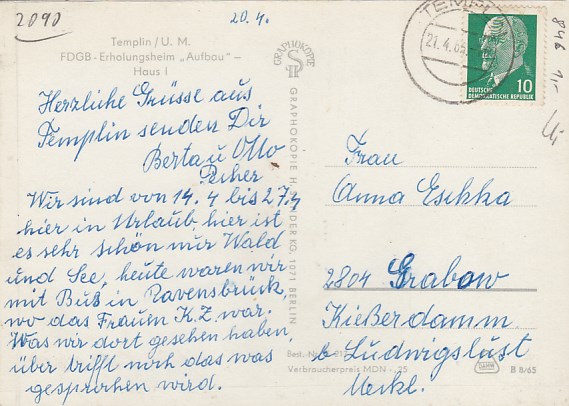 2090
20. 4.
Templin / U. M.
FDGB - Erholungsheim „Aufbau" -
Haus I
Herzliche Grüsse aus
Templin senden Dir
Berta u Otto
Wir sind von 14. 4 bis 27.4
hier in Urlaub, hier ist
es sehr schön nur Wald
und See, heute waren wir
mit Bus in Ravensbrück,
wo das Frauen K.Z. war.
Was wir dort gesehen haben,
über trifft noch das was
gesprochen wird.
GRAPHOKOPIE
GRAPHOKOPIE H. KG, 1071 BERLIN
TEMPLIN
21. 4. 65
10
DEUTSCHE
DEMOKRATISCHE REPUBLIK
846
Frau
Anna Eschka
2804 Grabow
Kießerdamm
b Ludwigslust
Meckl.
Best.-Nr.
Verbraucherpreis MDN -,25
B 8/65